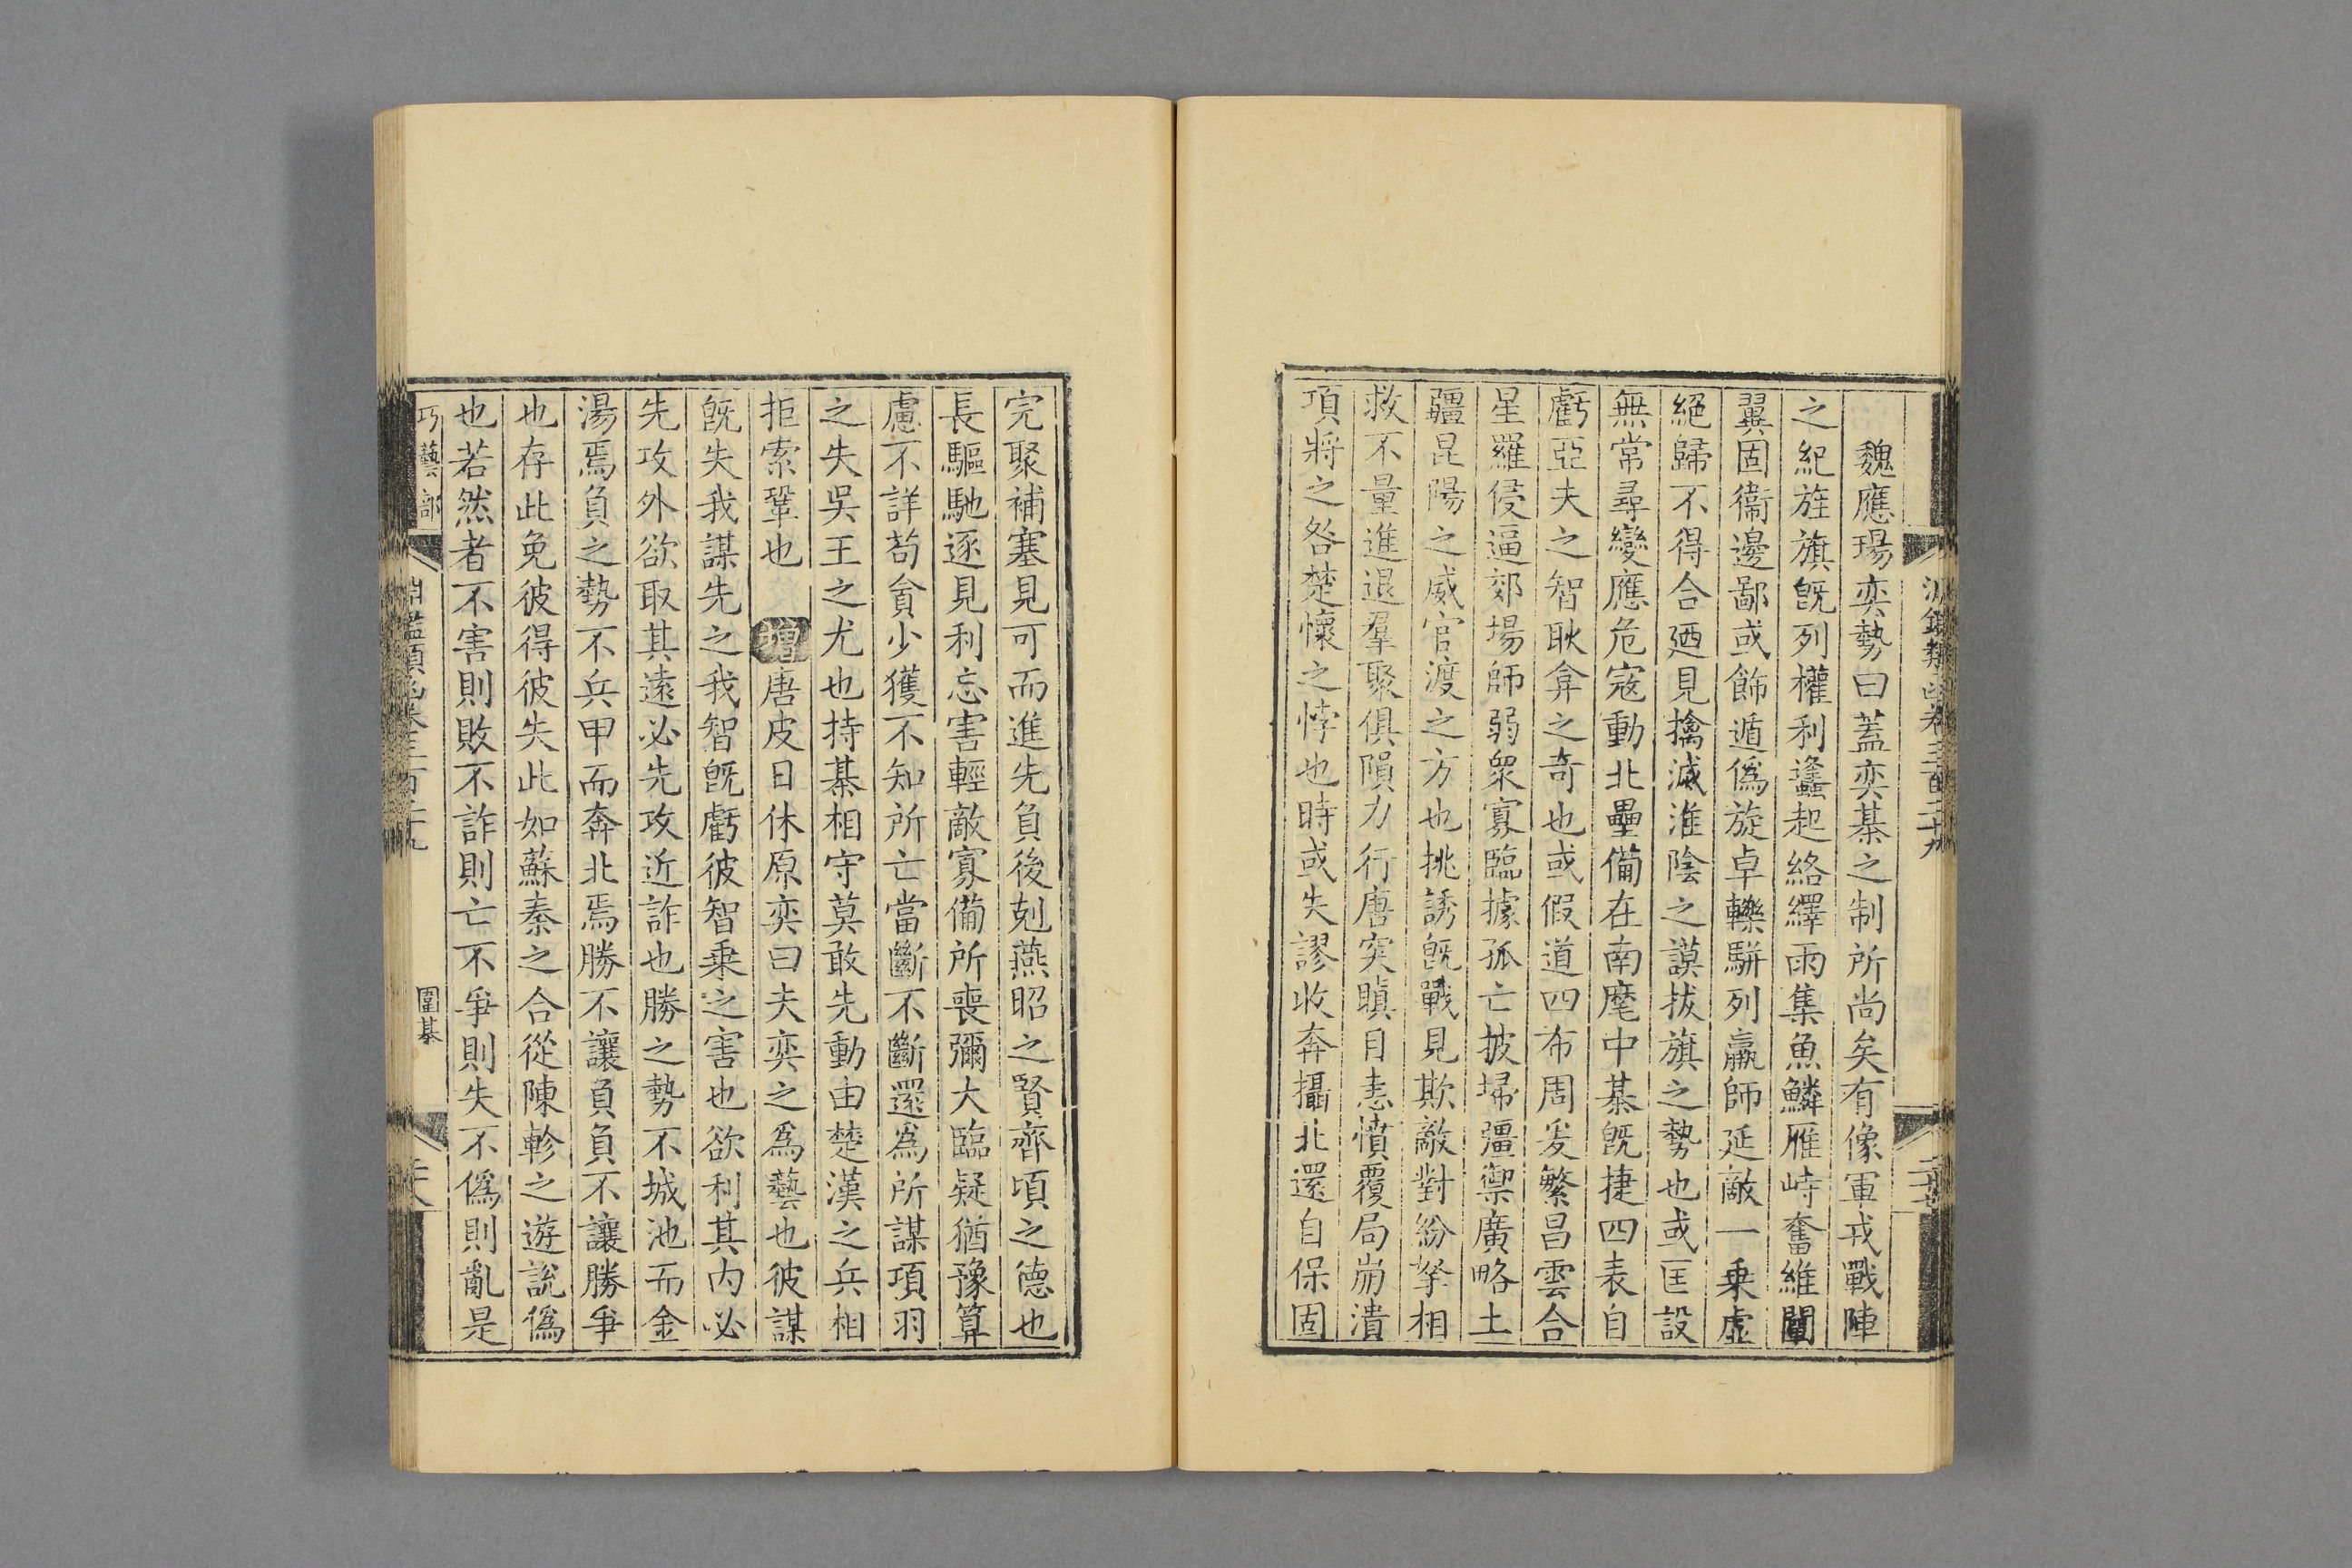 淵鑑類函卷三百二十九
魏應瑒奕勢曰蓋奕棊之制所尚矣有像軍戎戰陣
之紀旌旗旣列權利蠭起絡繹雨集魚鱗雁峙奮維闡
翼固衞邊鄙或飾遁僞旋卓轢駢列羸師延敵一乗虛
絕歸不得合廼見擒滅淮陰之謨拔旗之勢也或匡設
無常尋變應危寇動北壘備在南麾中棊旣捷四表自
虧亞夫之智耿弇之奇也或假道四布周爰繁昌雲合
星羅侵逼郊場師弱衆寡臨據孤亡披埽彊禦廣略土
疆昆陽之威官渡之方也挑誘旣戰見欺敵對紛拏相
救不量進退羣聚俱隕力行唐突瞋目恚憤覆局崩潰
項將之咎楚懷之悖也時或失謬收奔攝北還自保固
完聚補塞見可而進先負後剋燕昭之賢齊頃之德也
長驅馳逐見利忘害輕敵寡備所喪彌大臨疑猶豫算
慮不詳苟貪少獲不知所亡當斷不斷還爲所謀項羽
之失吳王之尤也持棊相守莫敢先動由楚漢之兵相
拒索鞏也 增唐皮日休原奕曰夫奕之爲藝也彼謀
旣失我謀先之我智旣虧彼智乗之害也欲利其内必
先攻外欲取其遠必先攻近詐也勝之勢不城池而金
湯焉負之勢不兵甲而奔北焉勝不讓負負不讓勝爭
也存此免彼得彼失此如蘇秦之合從陳軫之遊說僞
也若然者不害則敗不詐則亡不爭則失不僞則亂是
巧藝部
淵鑑類函卷三百二十九
圍棊
二十八